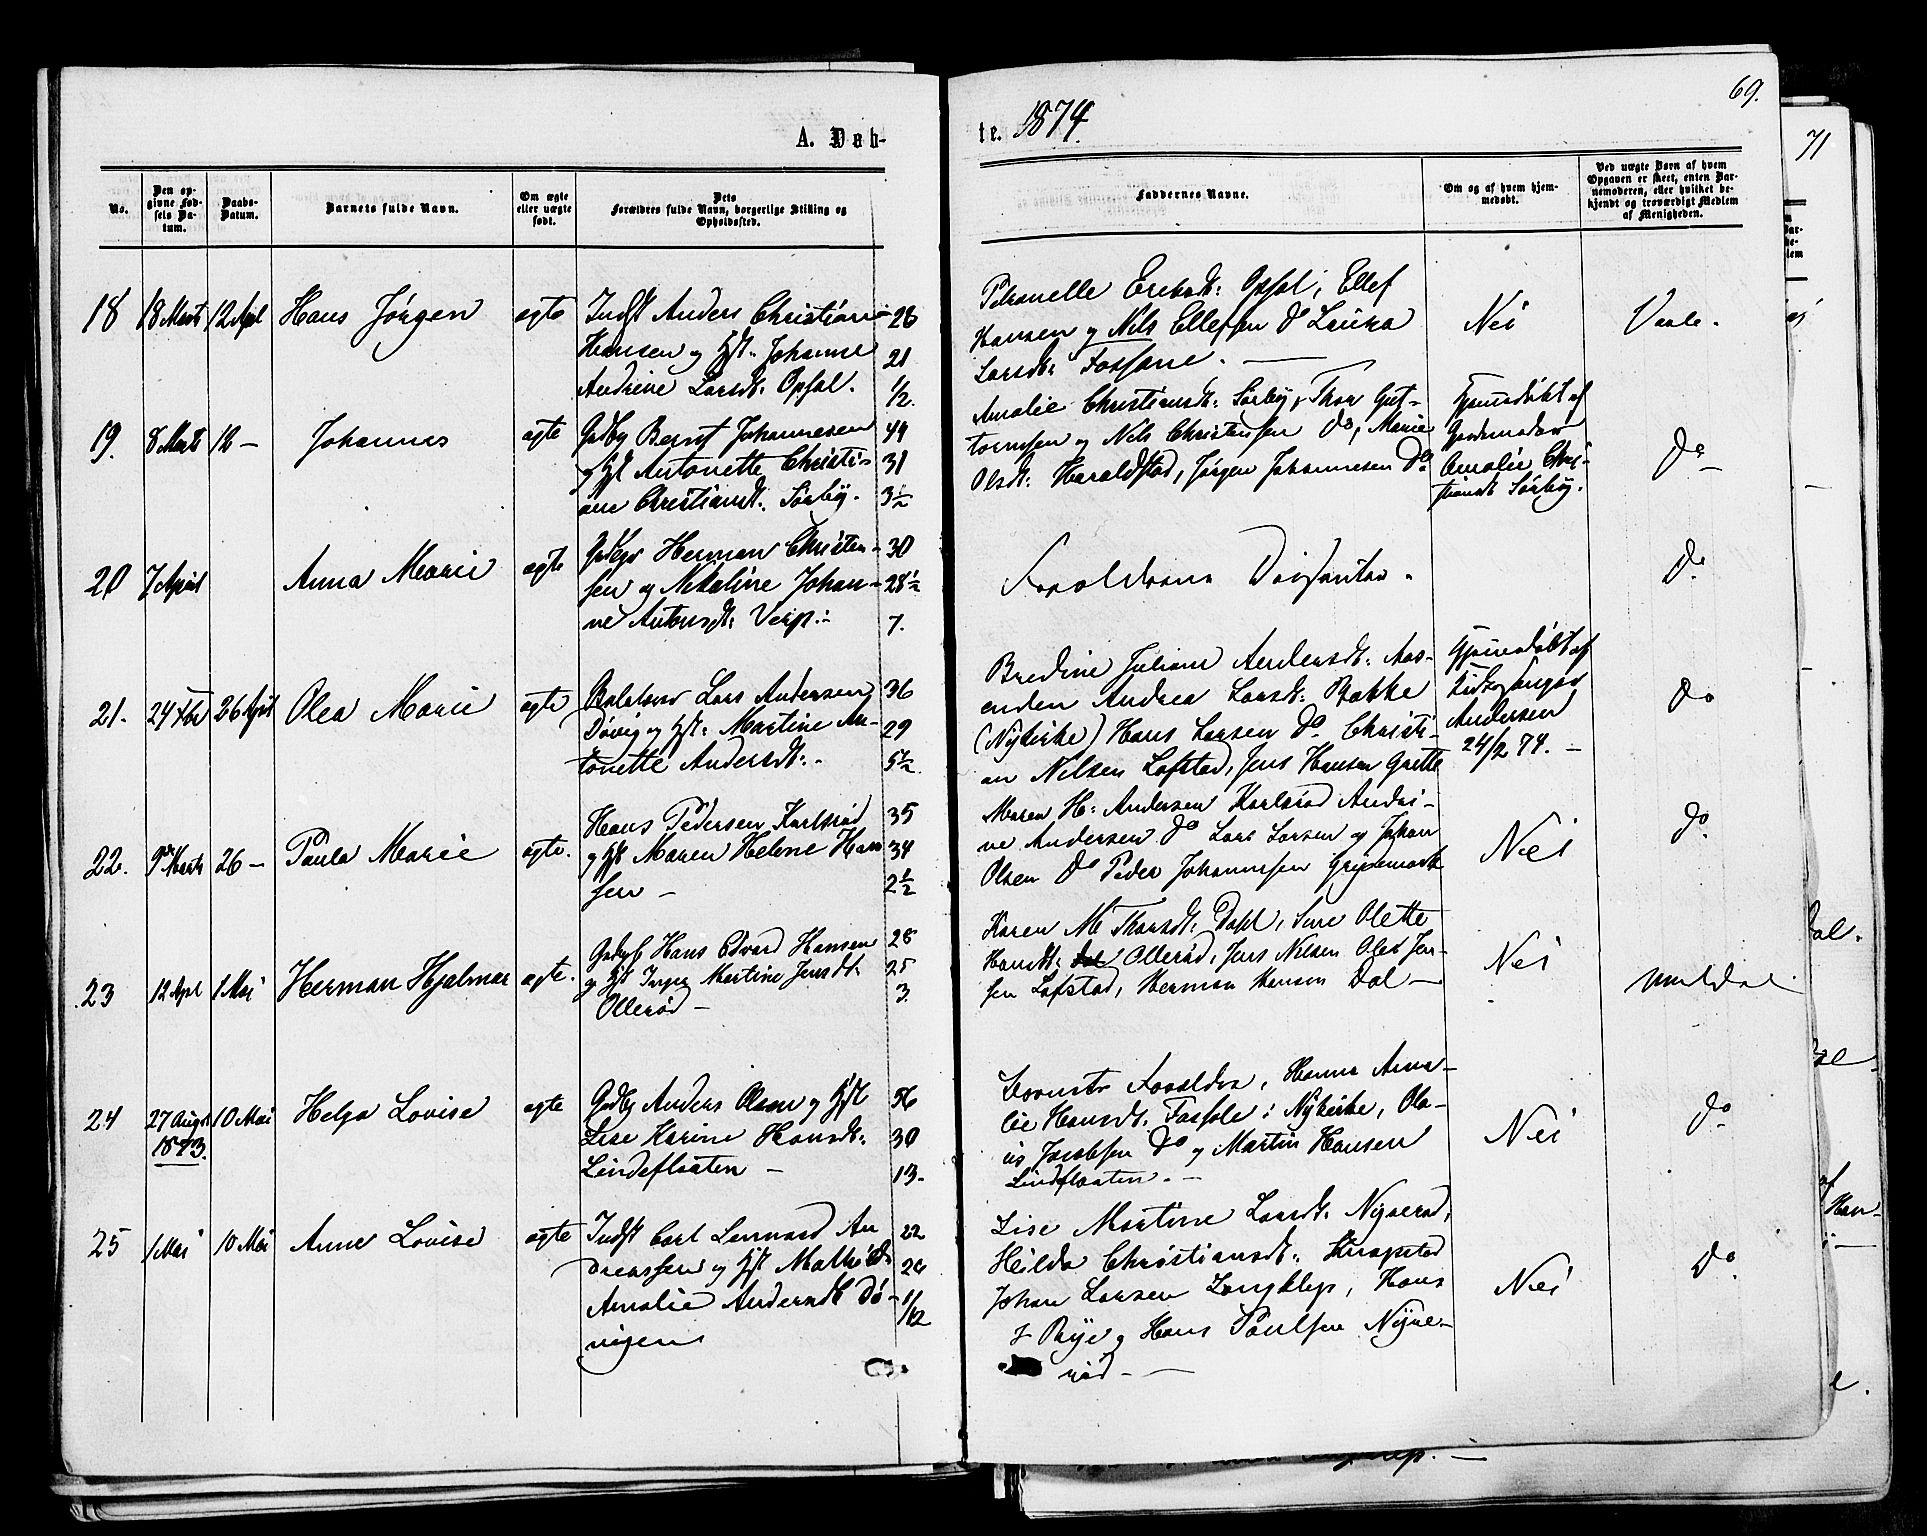 69.
71
A. Døb-
te. 1874.
No.
Den op-
givne Fød-
sels Da-
tum.
Daabs-
Datum.
Barnets fulde Navn.
Om ægte
eller uægte
født.
Dets
Forældres fulde Navn, borgerlige Stilling og
Opholdssted.
Faddernes Navne.
Om og af hvem hjem-
medøbt.
Ved uægte Børn af hvem
Opgaven er skeet, enten Bar-
nemoderen, eller hvilket be-
kjendt og troværdigt Medlem
af Menigheden.
18 18 Marts 12 Apl Hans Jørgen ægte
Indst Anders Christian 26
Hansen og Hst. Johanne 21
Andrine Larsdt: Opsal. 1/2.
Petronelle Opsal, Ellef
Hansen og Nils Ellefsen Do Laura
Larsdt: Fossane. —
Nei
Vaale.
19. 8 Marts 12 — Johannes ægte
Gdbr Bernt Johannesen 49
og Hst Antonette Christi- 31
ane Christiansdt: Sørby. 3½
Amalie Christiansdt: Sørby, Thor Gut-
tormsen og Nils Christensen Do, Marie
Olsdt: Haraldstad, Jørgen Johannesen Do
Hjemmedøbt af
Amalie Chri-
stiansdt Sørby.
Do
20 7 April Anna Marie ægte
Herman Christen- 30
sen og Nikoline Johan- 28½
ne Antonsdt: Verp:- 7.
Do
21. 24 Xbr 26 April Olea Marie ægte
Lars Andersen 36
Døvig og Hst: Martine An- 29
tonette Andersdt:. 5½
Bredine Juliane Andersdt: Aas-
enden Andrea Larsdt: Bakke
(Nykirke) Hans Larsen Do Christi-
an Nilsen Lofstad, Jens Hansen Grette
Hjemmedøbt af
Kirkesanger
Andersen
24/2 74. —
Do
22. 9de Marts 26 — Paula Marie ægte.
Hans Pedersen Karlsrød 35
og Hst Maren Helene Han 34
sen — 2½
Maren H: Andersen Karlsrød Andri-
ne Andersen Do Lars Larsen og Johan
Olsen Do Peder Johannesen
Nei
Do
23 12 Apl 1 Mai Herman Hjalmar ægte.
Hans Edvard Hansen 28
og Hst Inger Martine Jensdt: 25
Ollerød — 3.
Karen M: Thorsdt: Dahl, Olette
Hansdt: Ollerød, Jens Nilsen Oles Jen-
sen Lofstad, Herman Hansen Dal —
Nei
Undrdal
24 27 Augs 10 Mai Helga Lovise ægte
1873.
Gdbr Anders Olsen og Hst 56
Lise Karine Hansdt: 30
Lindefloaten — 13.
Barnets Forældre, Hanna Ama-
lie Hansdt: Fossole i Nykirke, Ola-
us Jacobsen Do og Martin Hansen
Lindfloaten. —
Nei
Do
25 1 Mai 10 Mai Anne Lovise ægte
Indst Carl Lennard An 22
dreassen og Hst Mathilde
Amalie Andersdt Dø- 1/12
vigen
Lise Martine Larsdt: Nyerød,
Hilda Christiansdt: Knapstad
Johan Larsen Langklep, Hans
J Bye og Hans Paulsen Nyve-
rød. —
Nei
Do